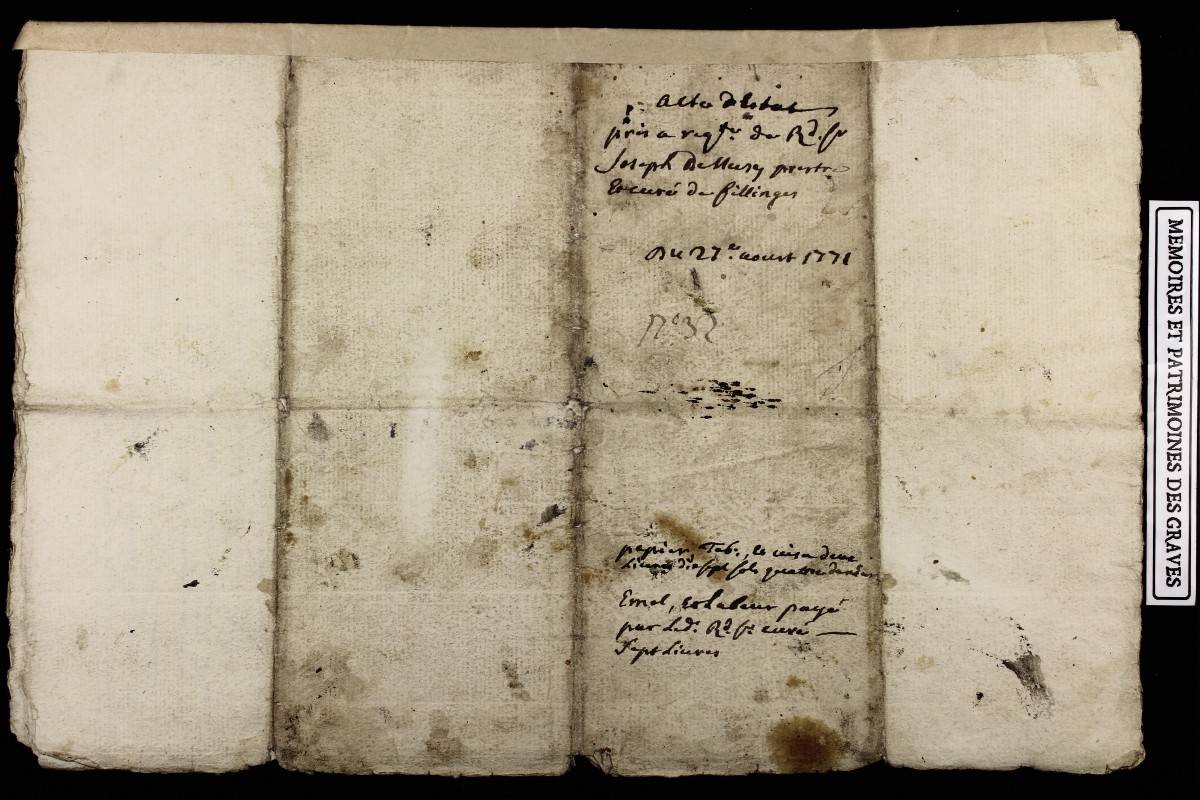 Acte d'Estat
pris a reqte de Rd. sr
Joseph DeMusy prestre
Et curé de fillinges
Du 27e. aoust 1771
n° 32
papier, Tab:, et visa deux
Livres dixsept sols quatre deniers
Emol, et Labeur payé
par Led. Rd. sr. curé
Sept Livres
MEMOIRES ET PATRIMOINES DES GRAVES